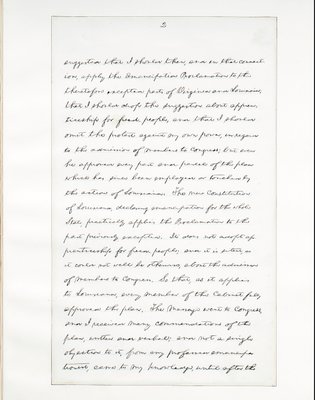 2
suggested that I should then, and in that connec-
tion, apply the Emancipation Proclamation to the
theretofore excepted parts of Virginia and Louisiana;
that I should drop the suggestion about appren-
ticeship for freed people, and that I should
omit the protest against my own power, in regard
to the admission of members to Congress; but even
he approved every part and parcel of the plan
which has since been employed or touched by
the action of Louisiana. The new Constitution
of Louisiana, declaring emancipation for the whole
State, practically applies the Proclamation to the
part previously excepted. It does not adopt ap-
prenticeship for freed people; and it is silent, as
it could not well be otherwise, about the admission
of members to Congress. So that, as it applies
to Louisiana, every member of the Cabinet fully
approved the plan. The Message went to Congress,
and I received many commendations of the
plan, written and verbal; and not a single
objection to it, from any professed emancipa-
tionist, came to my knowledge, until after the